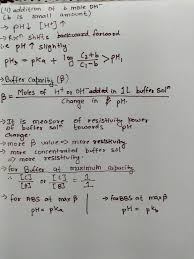 (ii) addition of b mole OH⁻
(b is small amount)
→ pH↑ [H⁺]↑
→ Rxⁿ shifts backward forward
i.e pH ↑ slightly
pH₂ = pKa + log C₂+b / C₁-b > pH₁
→ Buffer Capacity (β)
β = Moles of H⁺ or OH⁻ added in 1L buffer solⁿ / Change in pH
→ It is measure of resistivity power
of buffer solⁿ towards pH
change.
→ more β value ⇒ more resistivity
→ more concentrated buffer solⁿ
⇒ more resistivity.
→ for Buffer at maximum capacity
= 1/1
for ABS at max β | for BBS at max β
pH = pKa | pH = pKb